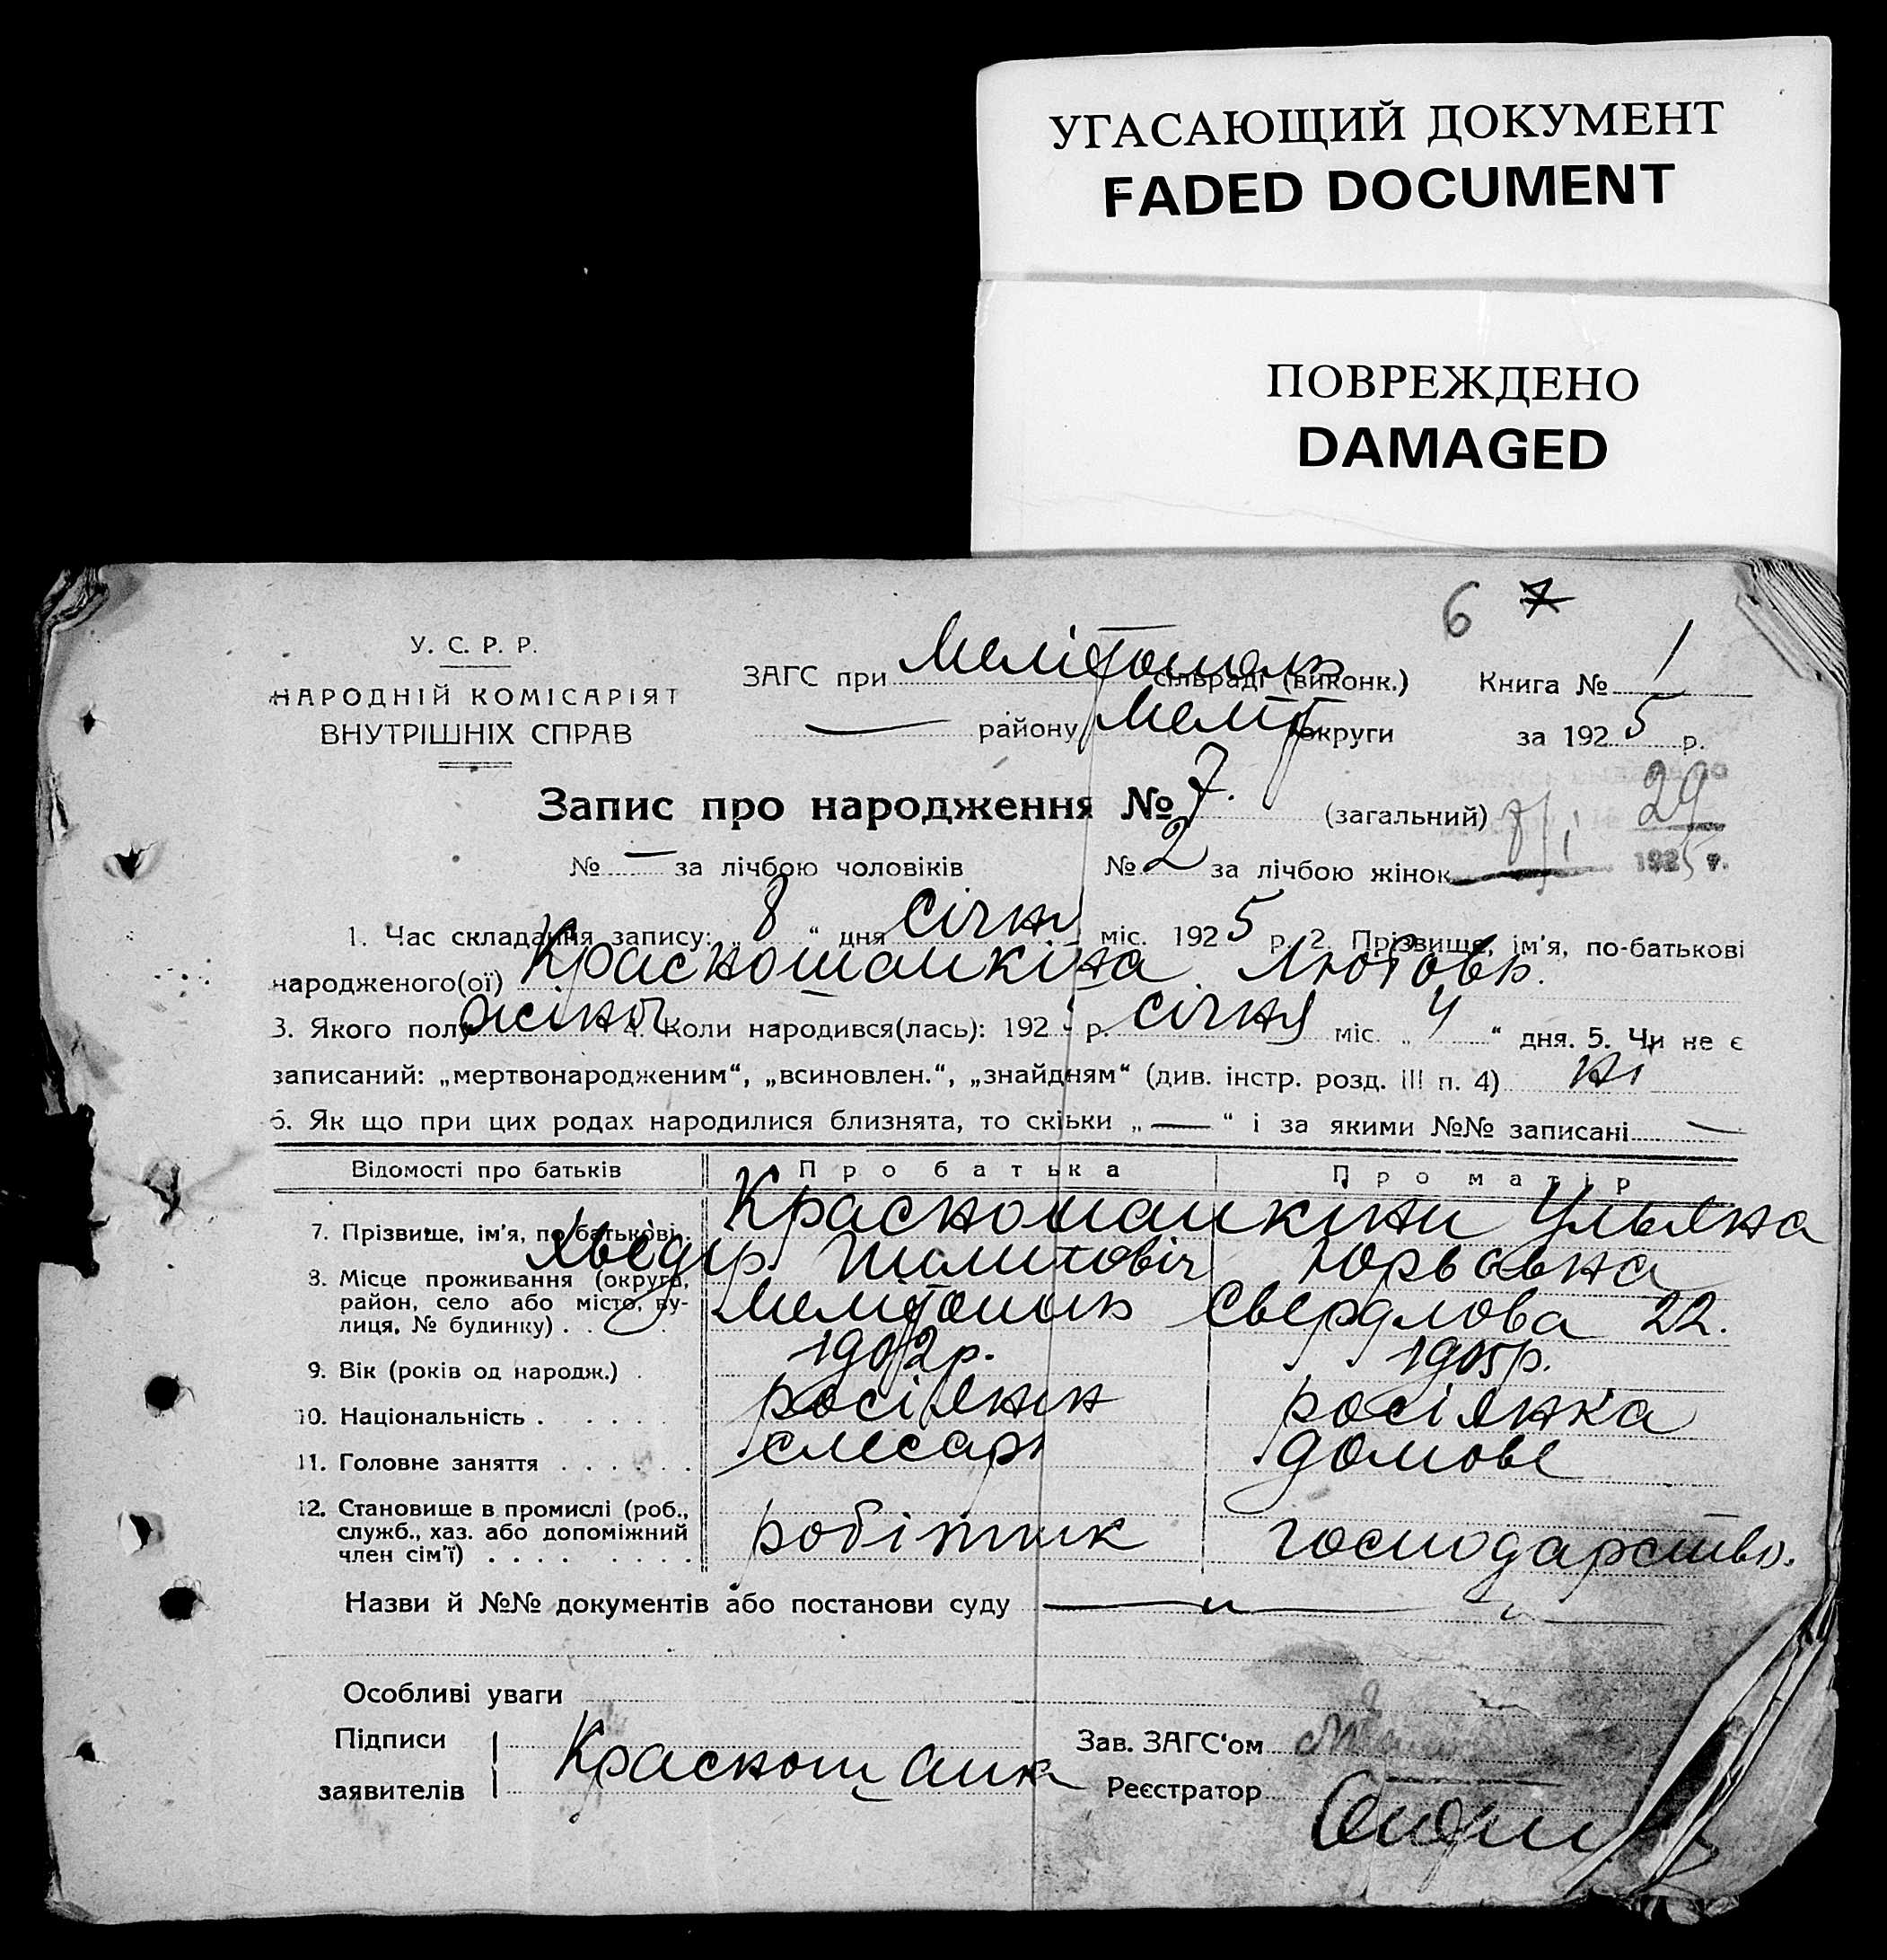 УГАСАЮЩИЙ ДОКУМЕНТ
FADED DOCUMENT
ПОВРЕЖДЕНО
DAMAGED
6 7
У. С. Р. Р.
НАРОДНІЙ КОМІСАРІЯТ
ВНУТРІШНІХ СПРАВ
ЗАГС при Мелітополь сільраді (виконк.) Книга № 1
— району Меліт округи за 1925 р.
Запис про народження № 7. (загальний) 8/I 29
№ — за лічбою чоловіків № 2 за лічбою жінок 1925 г.
1. Час складання запису: „8“ дня січня міс. 1925 р. 2. Прізвище, ім'я, по-батькові
народженого(ої) Краснощапкіна Любовь.
3. Якого полу жіноч 4. Коли народився(лась): 192 р. січня міс. „4“ дня. 5. Чи не є
записаний: „мертвонародженим“, „всиновлен.“, „знайдням“ (див. інстр. розд. III п. 4) ні
6. Як що при цих родах народилися близнята, то скільки „—“ і за якими №№ записані —
Відомості про батьків Про батька Про матір
7. Прізвище, ім'я, по батькові Краснощапкіни Ульяна
Хведір Пилипович Юрьевна
8. Місце проживання (округа, район, село або місто, вулиця, № будинку) Мелітополь Свердлова 22.
9. Вік (років од народж.) 1902 р. 1905 р.
10. Національність росіянин росіянка
11. Головне заняття слесарь домове
12. Становище в промислі (роб., служб., хаз. або допоміжний член сім'ї) робітник господарство.
Назви й №№ документів або постанови суду — „ — „ —
Особливі уваги
Підписи
заявителів Краснощапк
Зав. ЗАГС'ом
Реєстратор